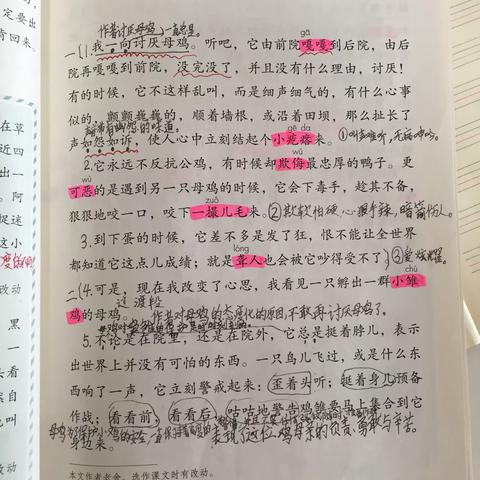 作者讨厌母鸡,一直总里。
gā
一(1.我一向讨厌母鸡。听吧,它由前院嘎嘎到后院,由后
院再嘎嘎到前院,没完没了,并且没有什么理由,讨厌!
有的时候,它不这样乱叫,而是细声细气的,有什么心事
似的,颤颤巍巍的,顺着墙根,或沿着田坝,那么扯长了
声如怨如诉,使人心中立刻结起个小疙瘩来。①叫声难听,无病呻吟。
gē da
2.它永远不反抗公鸡,有时候却欺侮最忠厚的鸭子。更
wù
可恶的是遇到另一只母鸡的时候,它会下毒手,趁其不备,
zuǒ
狠狠地咬一口,咬下一撮儿毛来。②欺软怕硬,心狠手辣,暗箭伤人。
3.到下蛋的时候,它差不多是发了狂,恨不能让全世界
lóng
都知道它这点儿成绩;就是聋人也会被它吵得受不了。③爱炫耀。
chú
二(4.可是,现在我改变了心思,我看见一只孵出一群小雏
鸡的母鸡。
过渡段
作者对母鸡的态度变化的原因,不敢再讨厌母鸡了。
5.不论是在院里,还是在院外,它总是挺着脖儿,表示
出世界上并没有可怕的东西。一只鸟儿飞过,或是什么东
西响了一声,它立刻警戒起来:歪着头听;挺着身儿预备
作战;看看前,看看后,咕咕地警告鸡雏要马上集合到它
身边来。
表现了这位鸡母亲的负责、勇敢与辛苦。
本文作者老舍,选作课文时有改动。
定要出
肯回来。
在草
近四
出一
阿
捉迷
这小
改动
黑
一
头看
亲自
也叫
改动